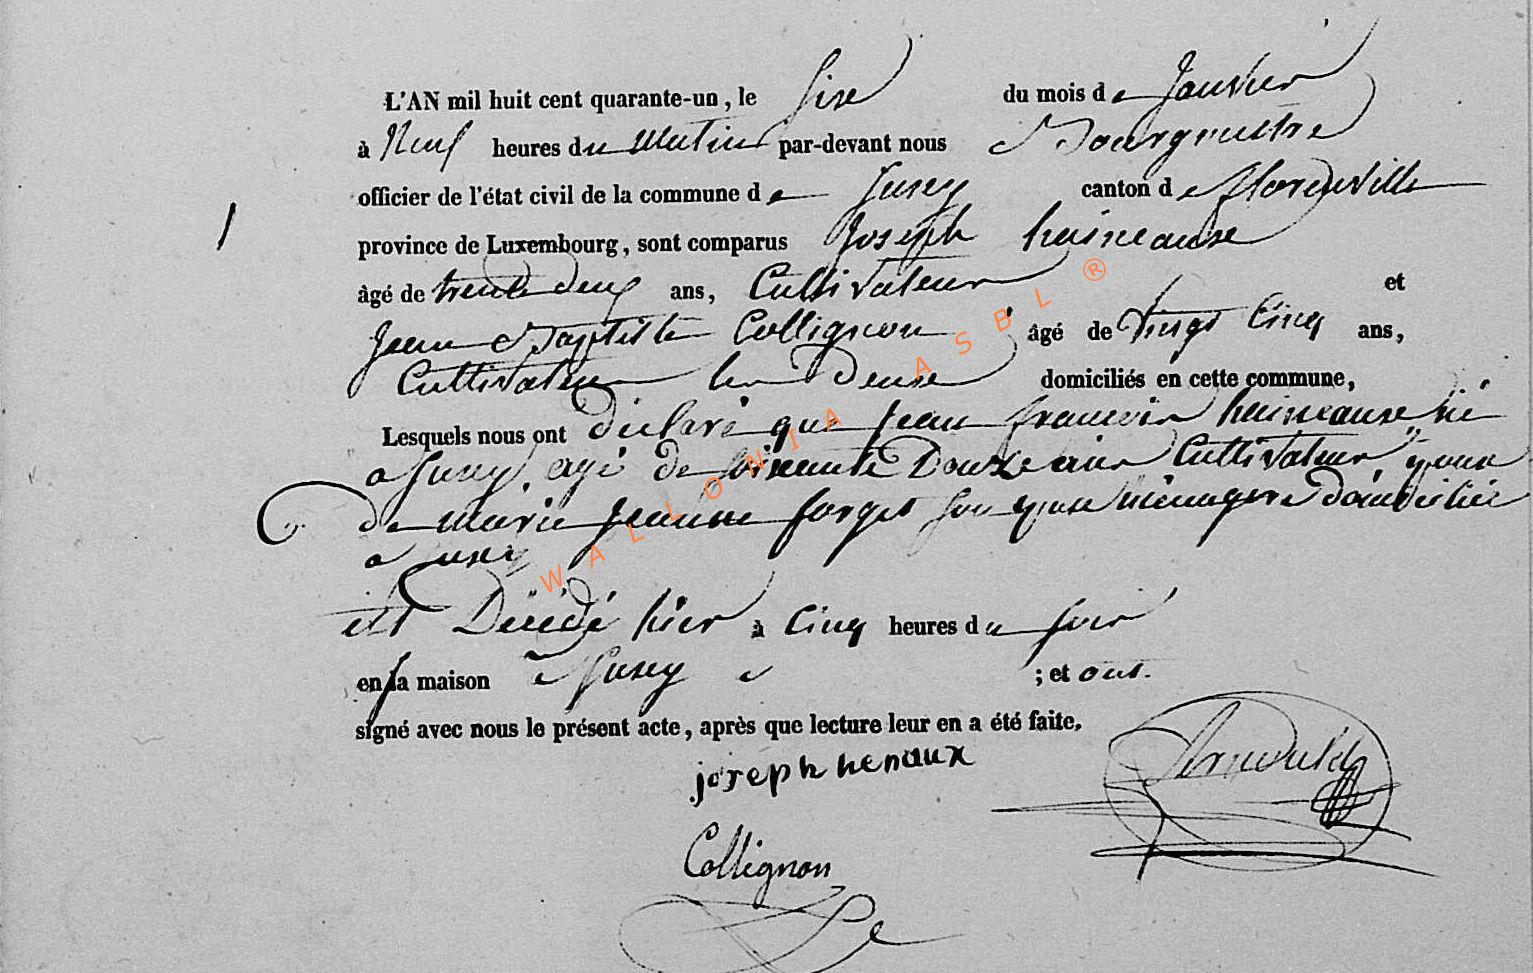 L'AN mil huit cent quarante-un, le Sixe du mois de Janvier
à Neuf heures du Matin par-devant nous Bourgmestre
officier de l'état civil de la commune de Jusey canton de florenville
1
province de Luxembourg, sont comparus Joseph haineause
âgé de trente deux ans, Cultivateur et
Jean Baptiste Collignon âgé de Vingt Cinq ans,
Cultivateur les Deuxe domiciliés en cette commune,
Lesquels nous ont déclaré que Jean francois haineause né
a Jusey agé de soixante Douze ans Cultivateur, epoux
de Marie Jeanne forget son epouse ménagere domiciliée
a Jusey
est Décédé hier à Cinq heures du soir
en sa maison a Jusey ; et ont.
signé avec nous le présent acte, après que lecture leur en a été faite.
joseph henaux
Arnould
Collignon
WALLONIA ASBL ®